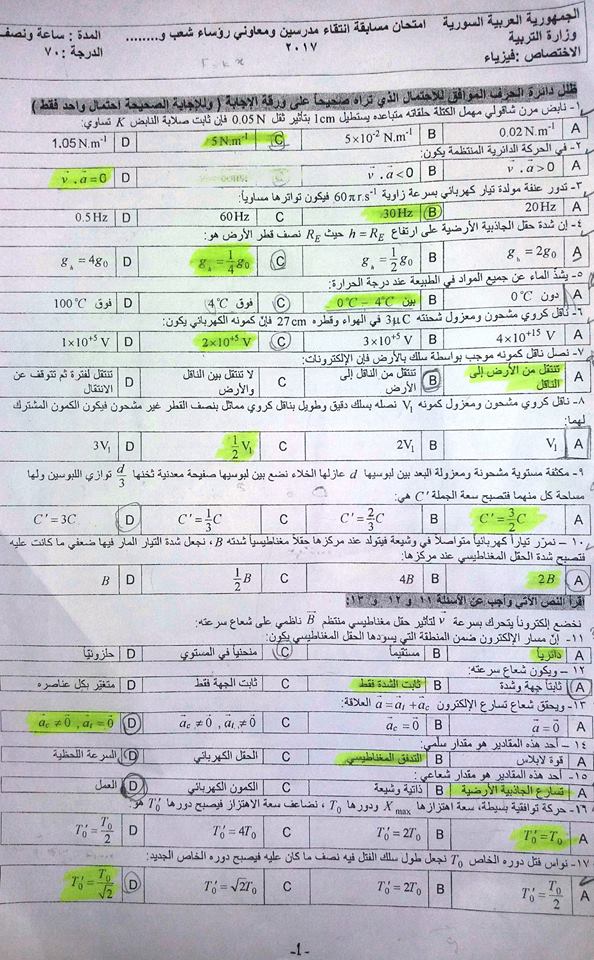 الجمهورية العربية السورية امتحان مسابقة انتقاء مدرسين ومعاوني رؤساء شعب و........ المدة : ساعة ونصف
وزارة التربية ٢٠١٧ الدرجة : ٧٠
الاختصاص :فيزياء
ظلل دائرة الحرف الموافق للاحتمال الذي تراه صحيحاً على ورقة الإجابة ( وللإجابة الصحيحة احتمال واحد فقط )
١- نابض مرن شاقولي مهمل الكتلة حلقاته متباعده يستطيل 1cm بتأثير ثقل 0.05 N فإن ثابت صلابة النابض K تساوي:
A 0.02 N.m⁻¹ B 5×10⁻² N.m⁻¹ C 5 N.m⁻¹ D 1.05 N.m⁻¹
٢- في الحركة الدائرية المنتظمة يكون:
A v⃗ . a⃗ > 0 B v⃗ . a⃗ < 0 C D v⃗ . a⃗ = 0
٣- تدور عنفة مولدة تيار كهربائي بسرعة زاوية 60π r.s⁻¹ فيكون تواترها مساوياً:
A 20 Hz B 30 Hz C 60 Hz D 0.5 Hz
٤- إن شدة حقل الجاذبية الأرضية على ارتفاع h = R_E حيث R_E نصف قطر الأرض هو:
A g_h = 2g₀ B g_h = ½ g₀ C g_h = ¼ g₀ D g_h = 4g₀
٥- يشذّ الماء عن جميع المواد في الطبيعة عند درجة الحرارة:
A دون 0°C B بين 0°C – 4°C C فوق 4°C D فوق 100°C
٦- ناقل كروي مشحون ومعزول شحنته 3μC في الهواء وقطره 27 cm فإنّ كمونه الكهربائي يكون:
A 4×10⁺¹⁵ V B 3×10⁺⁵ V C 2×10⁺⁵ V D 1×10⁺⁵ V
٧- نصل ناقل كمونه موجب بواسطة سلك بالأرض فإن الإلكترونات:
A تنتقل من الأرض إلى الناقل B تنتقل من الناقل إلى الأرض C لا تنتقل بين الناقل والأرض D تنتقل لفترة ثم تتوقف عن الانتقال
٨- ناقل كروي مشحون ومعزول كمونه V₁ نصله بسلك دقيق وطويل بناقل كروي مماثل بنصف القطر غير مشحون فيكون الكمون المشترك
لهما:
A V₁ B 2V₁ C ½ V₁ D 3V₁
٩- مكثفة مستوية مشحونة ومعزولة البعد بين لبوسيها d عازلها الخلاء نضع بين لبوسيها صفيحة معدنية ثخنها d/3 توازي اللبوسين ولها
مساحة كل منهما فتصبح سعة الجملة C′ هي:
A C′ = 3/2 C B C′ = 2/3 C C C′ = 1/3 C D C′ = 3C
١٠- نمرّر تياراً كهربائياً متواصلاً في وشيعة فيتولد عند مركزها حقلاً مغناطيسياً شدته B، نجعل شدة التيار المار فيها ضعفي ما كانت عليه
فتصبح شدة الحقل المغناطيسي عند مركزها:
A 2B B 4B C ½ B D B
اقرأ النص الآتي وأجب عن الأسئلة ١١ و ١٢ و ١٣:
نخضع إلكتروناً يتحرك بسرعة v⃗ لتأثير حقل مغناطيسي منتظم B⃗ ناظمي على شعاع سرعته:
١١- إن مسار الإلكترون ضمن المنطقة التي يسودها الحقل المغناطيسي يكون:
A دائرياً B مستقيماً C منحنياً في المستوي D حلزونيّاً
١٢- ويكون شعاع سرعته:
A ثابتاً جهة وشدة B ثابت الشدة فقط C ثابت الجهة فقط D متغيّر بكل عناصره
١٣- ويحقق شعاع تسارع الإلكترون a⃗ = a⃗_t + a⃗_c العلاقة:
A a⃗ = 0⃗ B a⃗_c = 0⃗ C a⃗_c ≠ 0⃗ , a⃗_t ≠ 0⃗ D a⃗_c ≠ 0⃗ , a⃗_t = 0⃗
١٤- أحد هذه المقادير هو مقدار سلّمي:
A قوة لابلاس B التدفق المغناطيسي C الحقل الكهربائي D السرعة اللحظية
١٥- أحد هذه المقادير هو مقدار شعاعي:
A تسارع الجاذبية الأرضية B ذاتية وشيعة C الكمون الكهربائي D العمل
١٦- حركة توافقية بسيطة، سعة اهتزازها X_max ودورها T₀ ، نضاعف سعة الاهتزاز فيصبح دورها T₀′ هو:
A T₀′ = T₀ B T₀′ = 2T₀ C T₀′ = 4T₀ D T₀′ = T₀/2
١٧- نواس فتل دوره الخاص T₀ نجعل طول سلك الفتل فيه نصف ما كان عليه فيصبح دوره الخاص الجديد:
A T₀′ = T₀/2 B T₀′ = 2T₀ C T₀′ = √2T₀ D T₀′ = T₀/√2
-1-